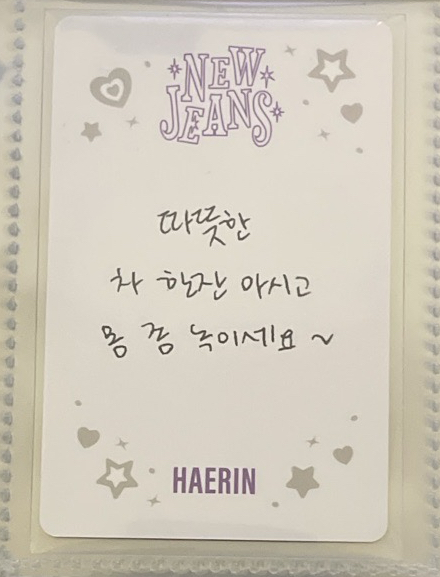 NEW
JEANS
따뜻한
차 한잔 마시고
몸 좀 녹이세요~
HAERIN